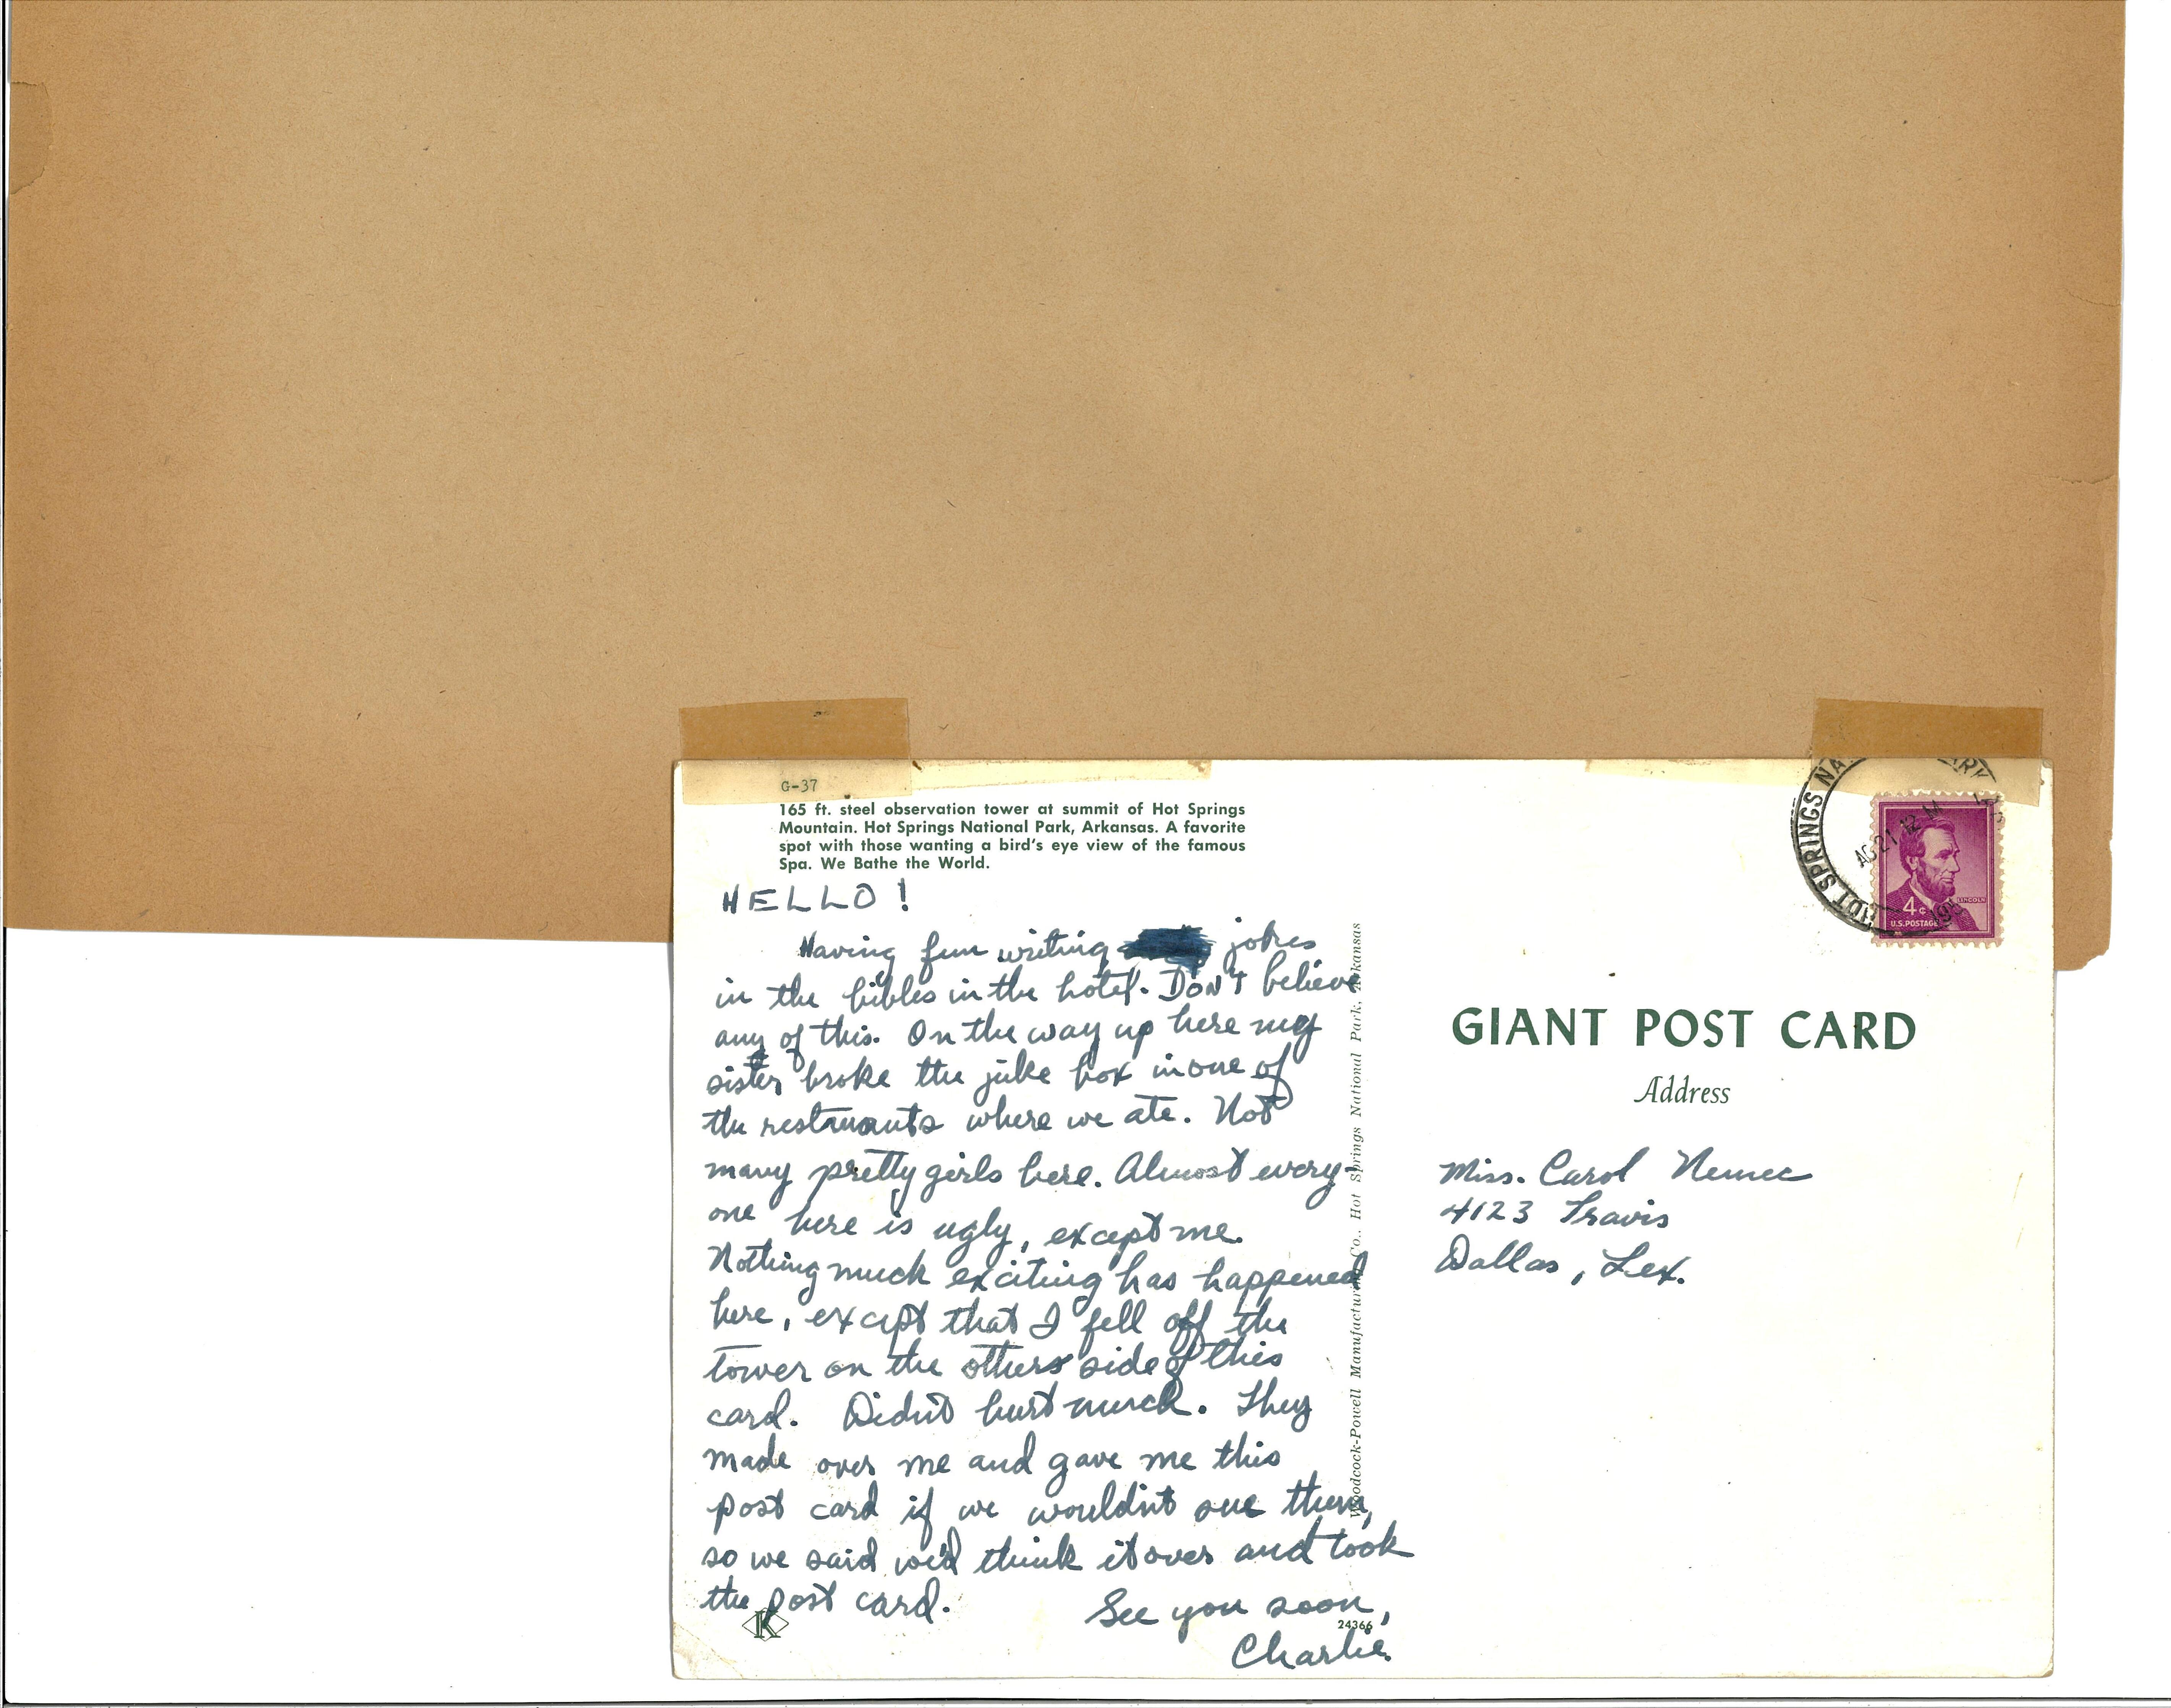 G-37
165 ft. steel observation tower at summit of Hot Springs
Mountain. Hot Springs National Park, Arkansas. A favorite
spot with those wanting a bird's eye view of the famous
Spa. We Bathe the World.
HELLO!
Having fun writing jokes
in the bibles in the hotel. DON'T believe
any of this. On the way up here my
sister broke the juke box in one of
the restaurants where we ate. Not
many pretty girls here. Almost every-
one here is ugly, except me.
Nothing much exciting has happened
here, except that I fell off the
tower on the others side of this
card. Didn't hurt much. They
made over me and gave me this
post card if we wouldn't sue them,
so we said we'd think it over and took
the post card.
See you soon,
Charlie.
K
24366
Woodcock-Powell Manufacturing Co., Hot Springs National Park, Arkansas
HOT SPRINGS NA ARK
AUG 21 12 M
4¢
LINCOLN
U.S. POSTAGE
GIANT POST CARD
Address
Miss. Carol Nemec
4123 Travis
Dallas, Tex.